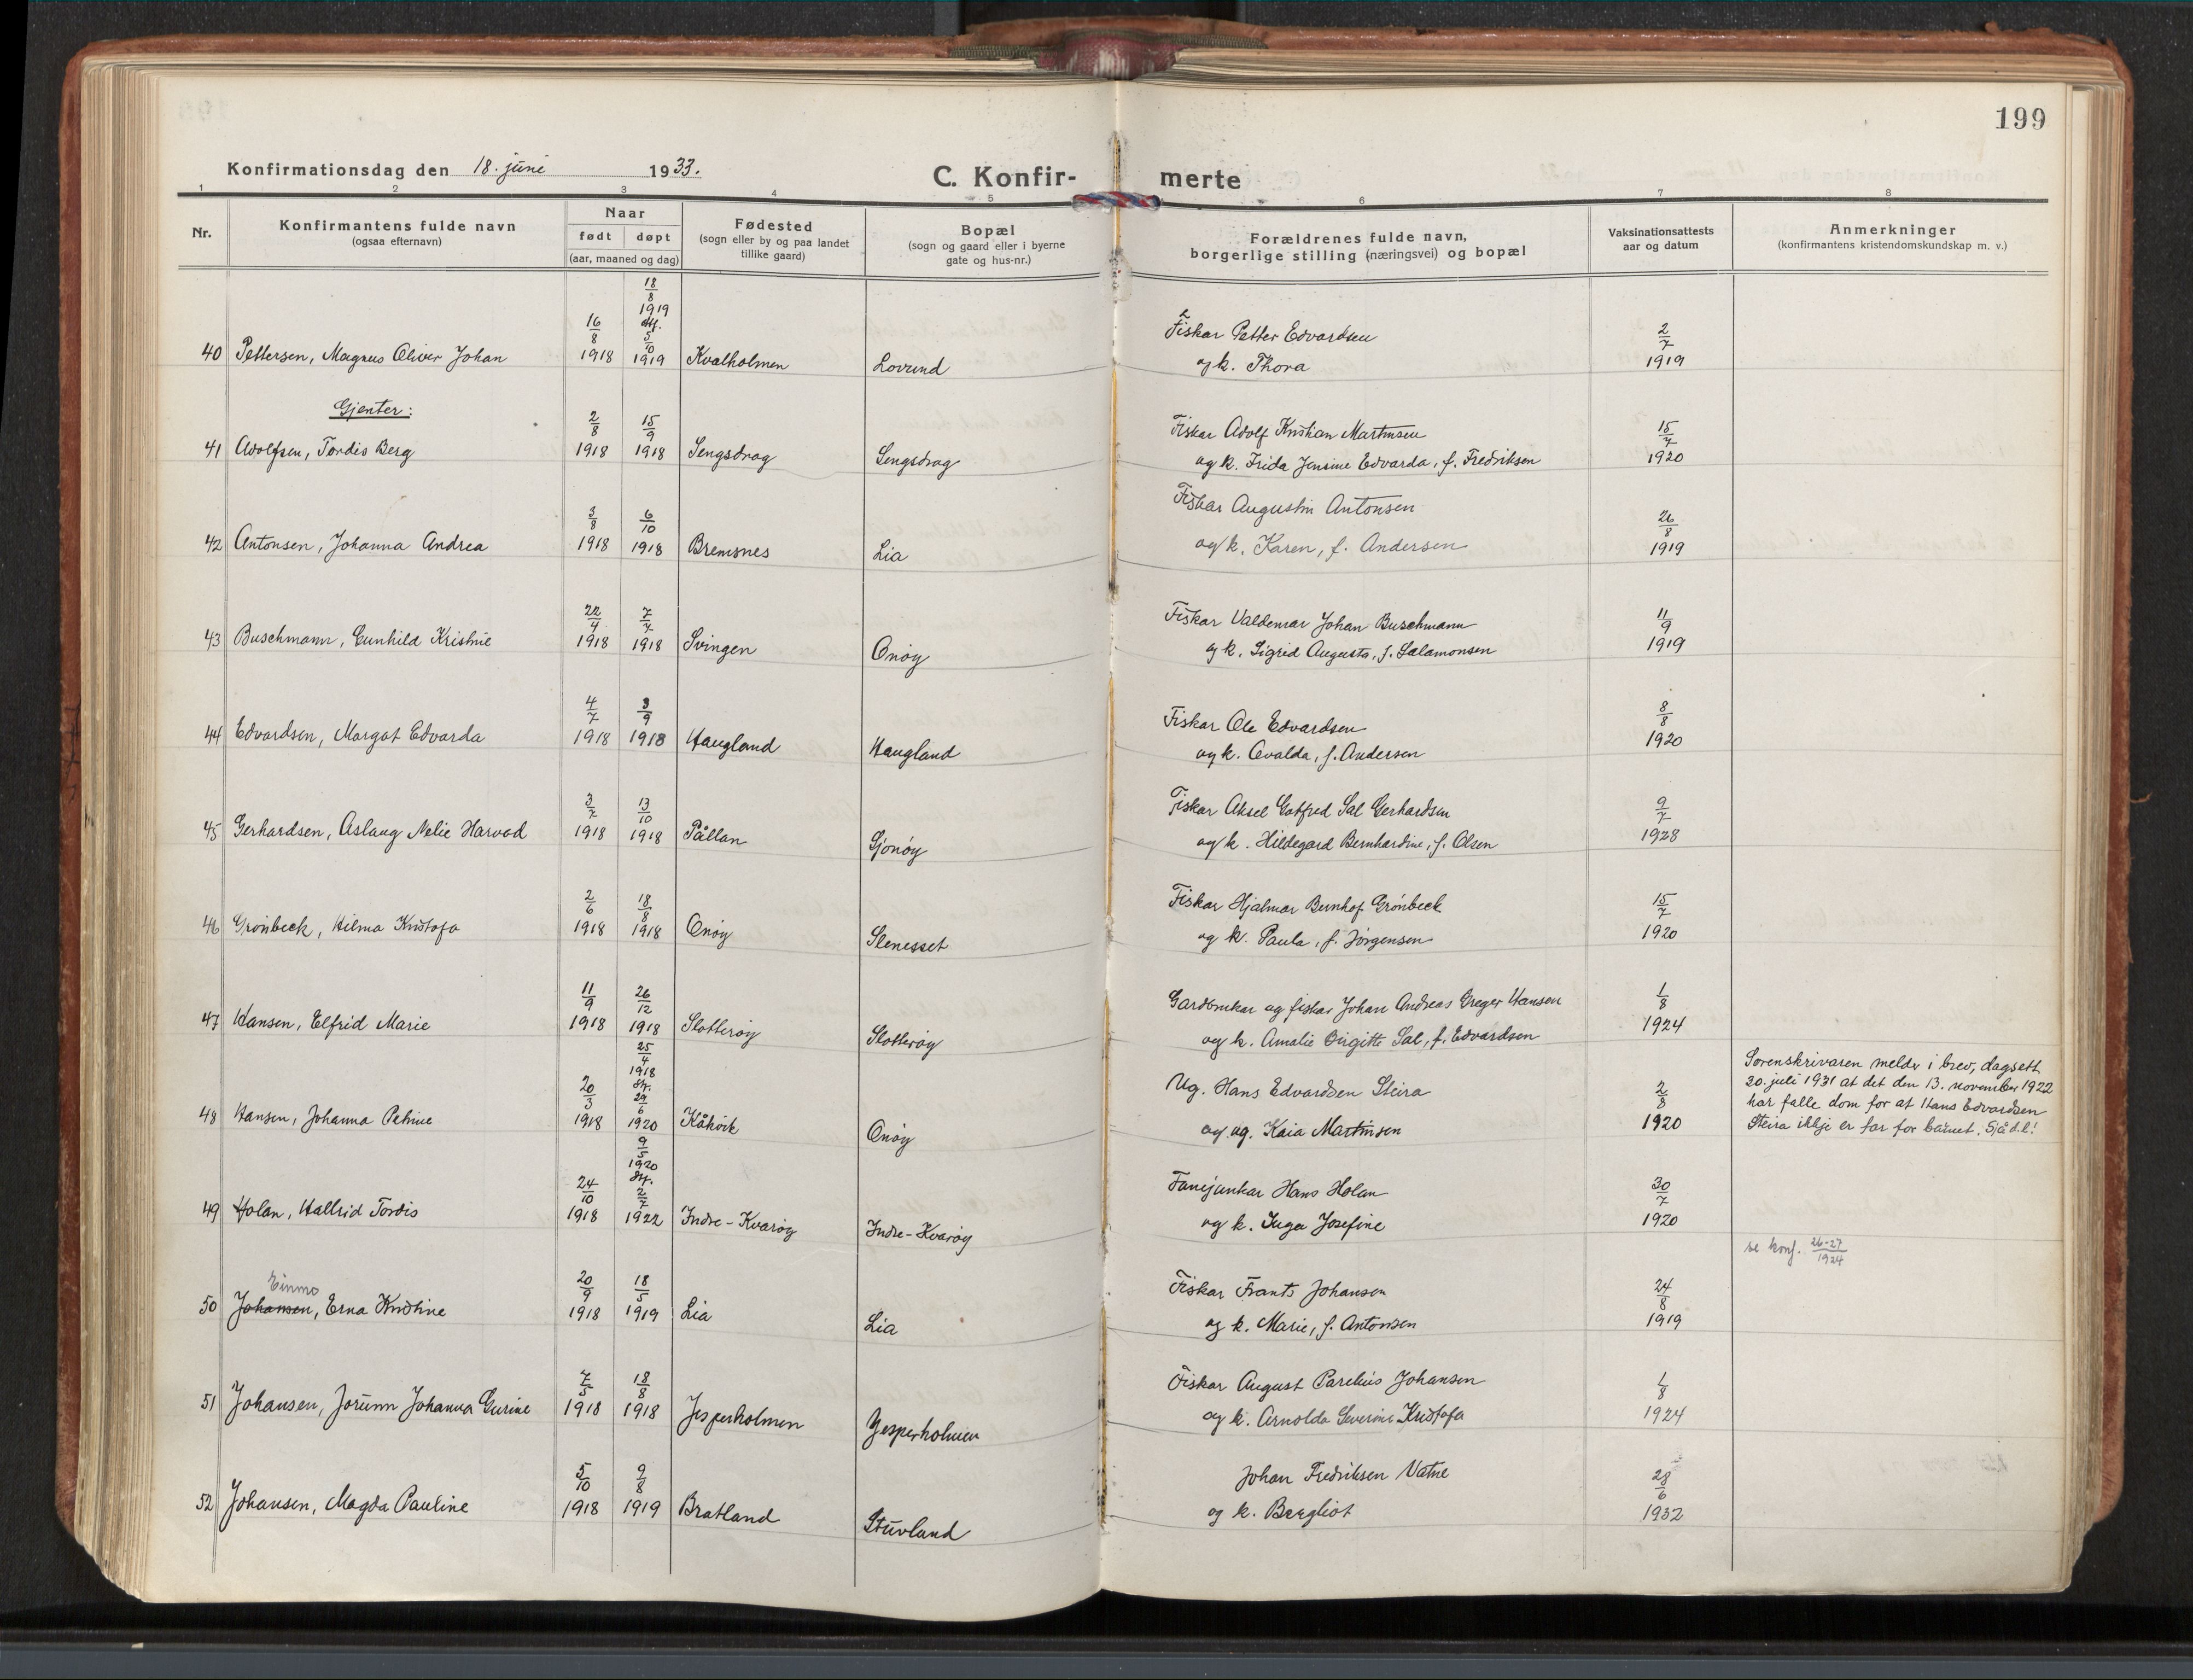 199
Konfirmationsdag den 18. juni 1933.
C. Konfir- merte
1 2 3 4 5 6 7 8
Nr.
Konfirmantens fulde navn
(ogsaa efternavn)
Naar
født døpt
(aar, maaned og dag)
Fødested
(sogn eller by og paa landet
tillike gaard)
Bopæl
(sogn og gaard eller i byerne
gate og hus-nr.)
Forældrenes fulde navn,
borgerlige stilling (næringsvei) og bopæl
Vaksinationsattests
aar og datum
Anmerkninger
(konfirmantens kristendomskundskap m. v.)
40 Pettersen, Magnus Oliver Johan 16/8 1918 18/8 1919 stf. 5/10 1919 Kvalholmen Lovund Fiskar Petter Edvardsen
og k. Thora 2/7 1919
Gjenter:
41 Adolfsen, Tordis Berg 2/8 1918 15/9 1918 Sengsdrag Sengsdrag Fiskar Adolf Kristian Martinsen
og k. Frida Jensine Edvarda, f. Fredriksen 15/7 1920
42 Antonsen, Johanna Andrea 3/8 1918 6/10 1918 Bremsnes Lia Fiskar Augustin Antonsen
og k. Karen, f. Andersen 26/8 1919
43 Buschmann, Gunhild Kristine 22/4 1918 7/7 1918 Svingen Onøy Fiskar Valdemar Johan Buschmann
og k. Sigrid Augusta, f. Salamonsen 11/9 1919
44 Edvardsen, Margot Edvarda 4/7 1918 8/9 1918 Haugland Haugland Fiskar Ole Edvardsen
og k. Ovalda, f. Andersen 8/8 1920
45 Gerhardsen, Aslaug Nelie Harvod 3/7 1918 13/10 1918 Pållan Gjonøy Fiskar Aksel Gotfred Sal Gerhardsen
og k. Hildegard Bernhardine, f. Olsen 9/7 1928
46 Grønbeck, Hilma Kristofa 2/6 1918 18/8 1918 Onøy Slenesset Fiskar Hjalmar Bernhof Grønbeck
og k. Paula, f. Jørgensen 15/7 1920
47 Hansen, Elfrid Marie 11/9 1918 26/12 1918 Slotterøy Slotterøy Gardbrukar og fiskar Johan Andreas Greger Hansen
og k. Amalie Birgitte Sal, f. Edvardsen 1/8 1924
48 Hansen, Johanna Petrine 20/3 1918 25/4 1918 stf. 29/6 1920 Kåkvik Onøy Ug. Hans Edvardsen Steira
og ug. Kaia Martinsen 2/8 1920
Sorenskrivaren melder i brev, dagsett
20. juli 1931 at det den 13. november 1922
har falle dom for at Hans Edvardsen
Steira ikkje er far for barnet. Sjå d.l!
49 Holan, Hallrid Tordis 24/10 1918 9/5 1920 stf. 2/7 1922 Indre-Kvarøy Indre-Kvarøy Fanejunkar Hans Holan
og k. Inga Josefine 30/7 1920
se konf. 26-27/1924
Einmo
50 Johansen, Erna Kristine 20/9 1918 18/5 1919 Lia Lia Fiskar Frants Johansen
og k. Marie, f. Antonsen 24/8 1919
51 Johansen, Jorunn Johanna Gurine 7/5 1918 18/8 1918 Jesperholmen Jesperholmen Fiskar August Parelius Johansen
og k. Arnolda Severine Kristofa 1/8 1924
52 Johansen, Magda Pauline 5/10 1918 9/8 1919 Bratland Stuvland Johan Fredriksen Vatne
og k. Bergliot 28/6 1932